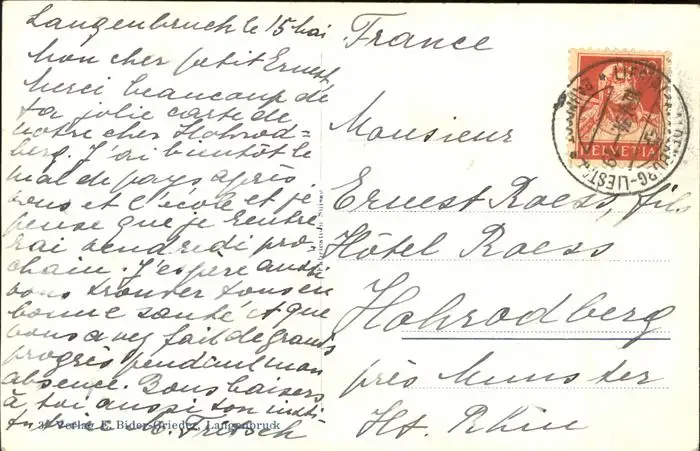 Langenbruck le 15 Mai
Mon cher petit Ernest,
Merci beaucoup de
ta jolie carte de
notre cher Hohrod=
berg. J'ai bientôt le
mal de pays après
vous et l'école et je
pense que je rentre
rai vendredi pro
chain. J'espère aussi
vous trouver tous en
bonne santé et que
vous avez fait de grands
progrès pendant mon
absence. Bons baisers
à toi aussi ton insti
tutrice M. Fritsch
Verlag E. Bider-Grieder, Langenbruck
France
Monsieur
Ernest Roess, fils
Hôtel Roess
Hohrodberg
près Munster
Ht. Rhin
HELVETIA